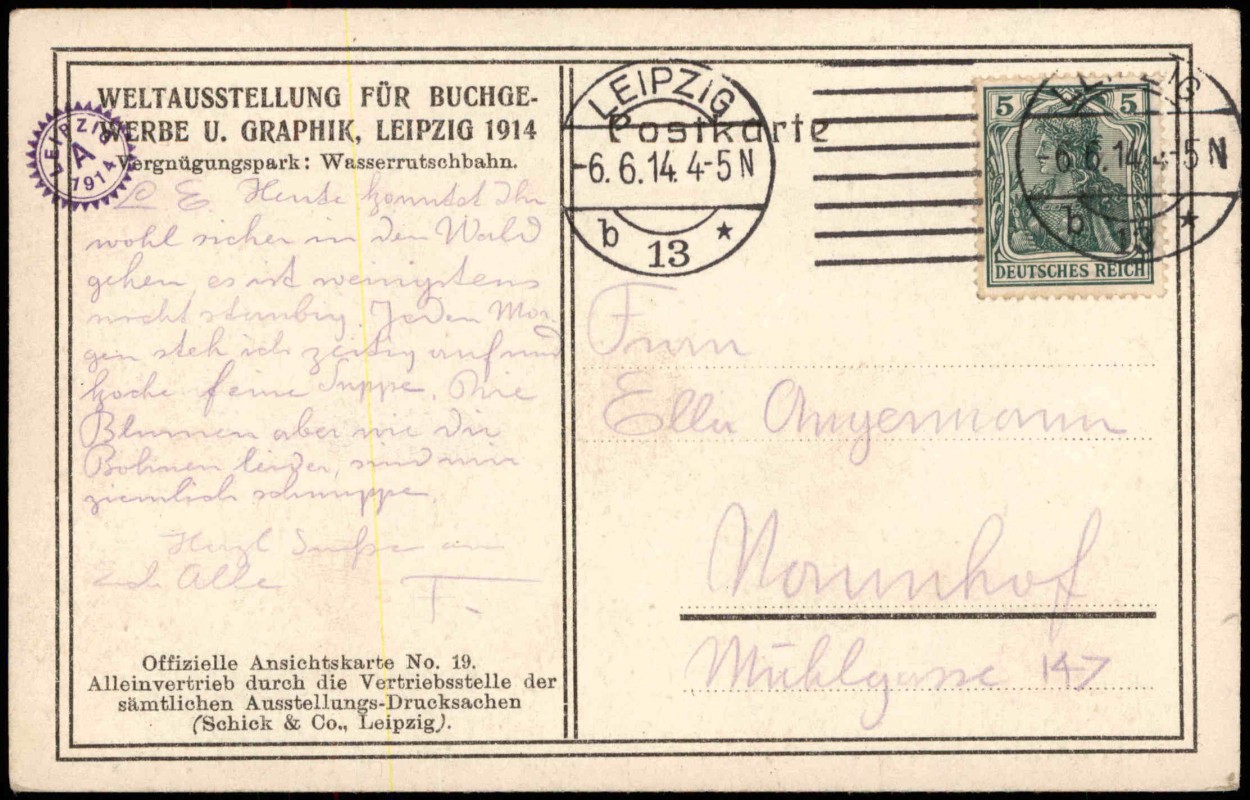 WELTAUSSTELLUNG FÜR BUCHGE-
WERBE U. GRAPHIK, LEIPZIG 1914
Vergnügungspark: Wasserrutschbahn.
LEIPZIG
A
1914
L E. Heute konntet Ihr
wohl sicher in den Wald
gehen es ist wenigstens
nicht staubig. Jeden Mor-
gen steh ich zeitig auf und
koche feine Suppe. Die
Blumen aber wie die
Bohnen leider, sind mir
ziemlich schnuppe.
Herzl Grüße an
Euch Alle
F.
Offizielle Ansichtskarte No. 19.
Alleinvertrieb durch die Vertriebsstelle der
sämtlichen Ausstellungs-Drucksachen
(Schick & Co., Leipzig).
Postkarte
LEIPZIG
-6.6.14. 4-5 N
b
13
*
5 5
DEUTSCHES REICH
LEIPZIG
-6.6.14. 4-5 N
b
13
*
Frau
Ella Angermann
Naunhof
Mühlgasse 147